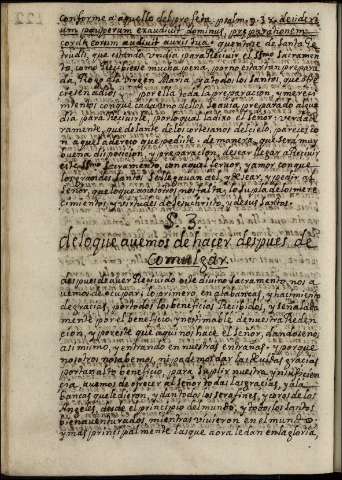 conforme a aquello del profeta. psalm. 9. 37. desideri
um pauperum exaudiuit dominus, preparationem
cordis eorum audiuit auris tua. quentase de santa Ge
trudis, que estando vn dia para Recibir el ssmo sacramen
to, como Recibiese mucha pena, por no estar tan prepara
da, Rogo ala virgen Maria, y a todos los santos, que ofre
ciesen a dios, por ella toda la preparacion, y mereci
mientos con que cada vno dellos se auia preparado algun
dia para Recibirle. por lo qual la dixo el señor: verdade
ramente, que delante de los cortesanos del cielo, pareces con
aquel adereço que pediste. de manera, que sera muy
buena disposicion, y preparacion, desear llegar a Recibir
este ssmo sacramento, con aquel feruor, y amor con que
los grandes santos se llegauan del, y desear, y pedir al
señor, que lo que a nosotros nos falta, lo supla de los mere
cimientos y virtudes de Jesuchristo, y de sus santos.
§. 3.
de lo que auemos de hacer despues de
Comulgar.
despues de auer Recibido este diuino sacramento, nos a
uemos de ocupar lo primero en alabanças, y hacimiento
de gracias, por todos los beneficios Recibidos, y señalada
mente por el beneficio ynestimable de nuestra Reden
cion, y por este que aqui nos hace el señor, dandosenos
asi mismo, y entrando en nuestras entrañas. y porque
nosotros no sabemos, ni podemos dar las deuidas gracias
por tan alto beneficio, para suplir nuestra ynsuficien
cia, auemos de ofrecer al señor todas las gracias, y ala
banças que le dieron, y dan todos los serafines, y coros de los
Angeles, desde el principio del mundo; y todos los santos
bienauenturados, mientras viuieron en el mundo
y mas principalmente las que aora le dan en la gloria,